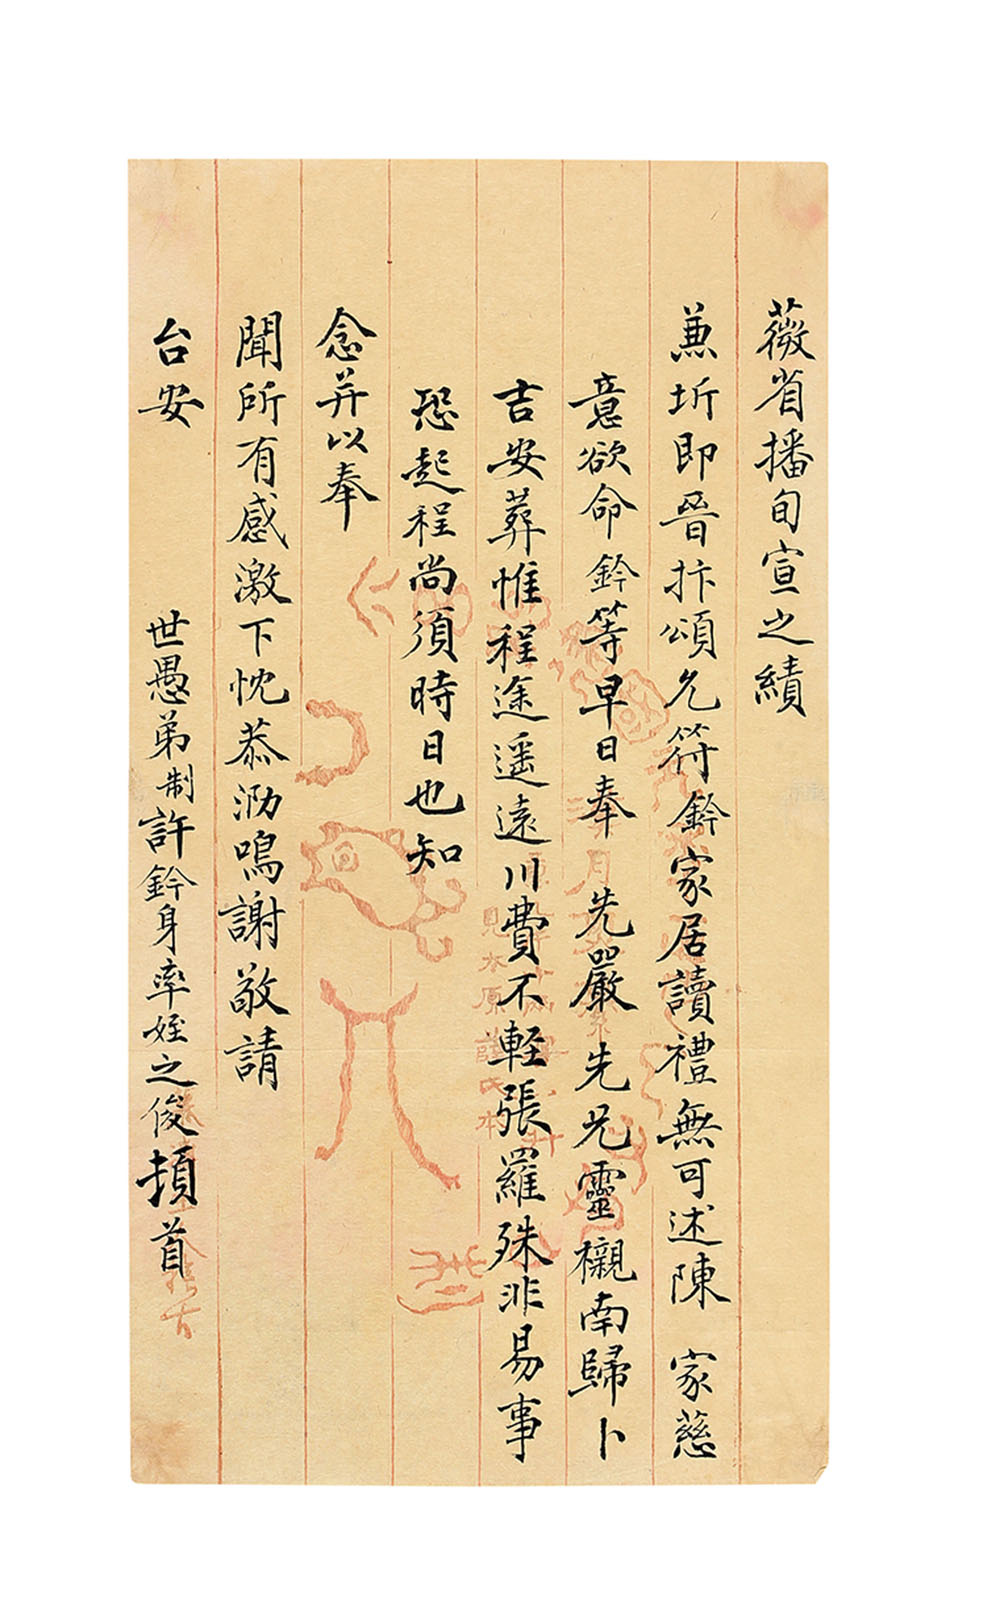 薇省播旬宣之績
兼圻即晉抃頌允符鈐家居讀禮無可述陳 家慈
意欲命鈐等早日奉 先嚴先兄靈櫬南歸卜
吉安葬惟程途遥遠川費不輕張羅殊非易事
恐起程尚須時日也知
念并以奉
聞所有感激下忱恭泐鳴謝敬請
台安 世愚弟制許鈐身率姪之俊頓首